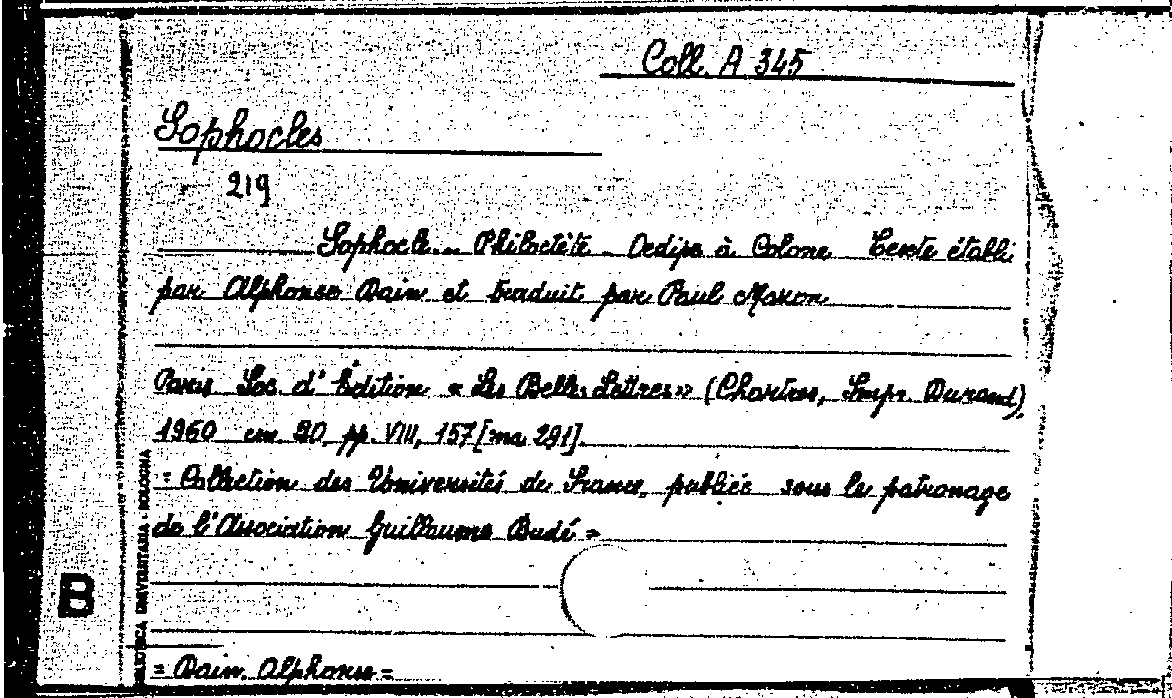 Coll. A 345
Sophocles
219
Sophocle... Philoctète _ Oedipe à Colone Texte établi
par Alphonse Dain et traduit par Paul Mazon
Paris Soc. d'Édition « Les Belles Lettres » (Chartres, Impr. Durand),
1960 cm. 20, pp. VIII, 157 [ma 291].
= Collection des Universités de France, publiée sous le patronage
de l'Association Guillaume Budé =
= Dain, Alphonse =
B
BIBLIOTECA UNIVERSITARIA - BOLOGNA